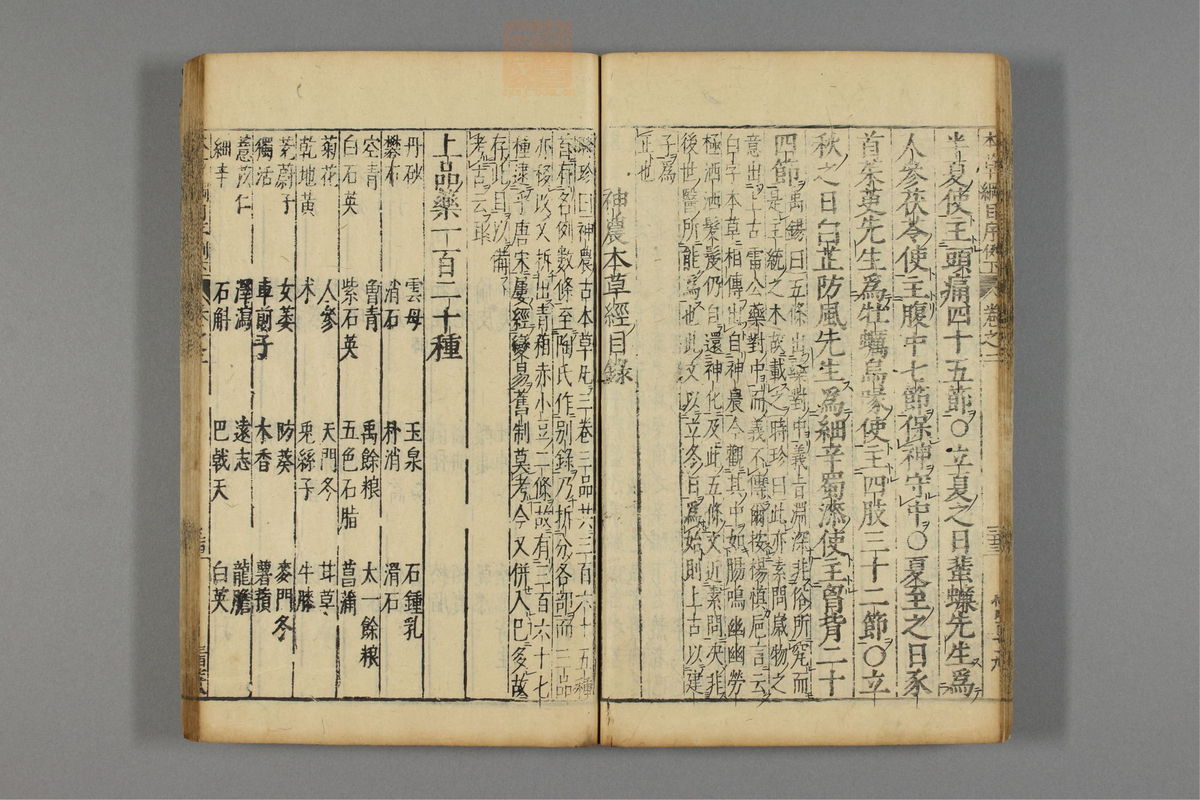 半夏使主頭痛四十五節○立夏之日蜚蠊先生爲
人參茯苓使主腹中七節保神守中○夏至之日豕
首茱萸先生爲牡蠣烏喙使主四肢三十二節○立
秋之日白芷防風先生爲細辛蜀漆使主胷背二十
四節
禹錫曰五條出藥對中義旨淵深非俗所究而
是主統之本故載之時珍曰此亦素問歲物之
意出上古雷公藥對中而義不傳爾按楊愼巵言云
白字本草相傳出自神農今觀其中如腸鳴幽幽勞
極洒洒髮髲仍自還神化及此五條文近素問决非
後世醫所能爲也此文以立冬日爲始則上古以建
子爲
正也
神農本草經目錄
時珍曰神農古本草凡三卷三品共三百六十五種
首有名例數條至陶氏作別錄乃拆分各部而三品
亦移以又拆出青葙赤小豆二條故有三百六十七
種逮乎唐宋屢經變易舊制莫考今又併入巴多故
存此目以備
考古云耳
上品藥一百二十種
丹砂 雲母 玉泉 石鍾乳
礬石 消石 朴消 滑石
空青 曾青 禹餘粮 太一餘粮
白石英 紫石英 五色石脂 菖蒲
菊花 人參 天門冬 甘草
乾地黃 术 兎絲子 牛膝
茺蔚子 女萎 防葵 麥門冬
獨活 車前子 木香 薯蕷
薏苡仁 澤瀉 遠志 龍膽
細辛 石斛 巴戟天 白英